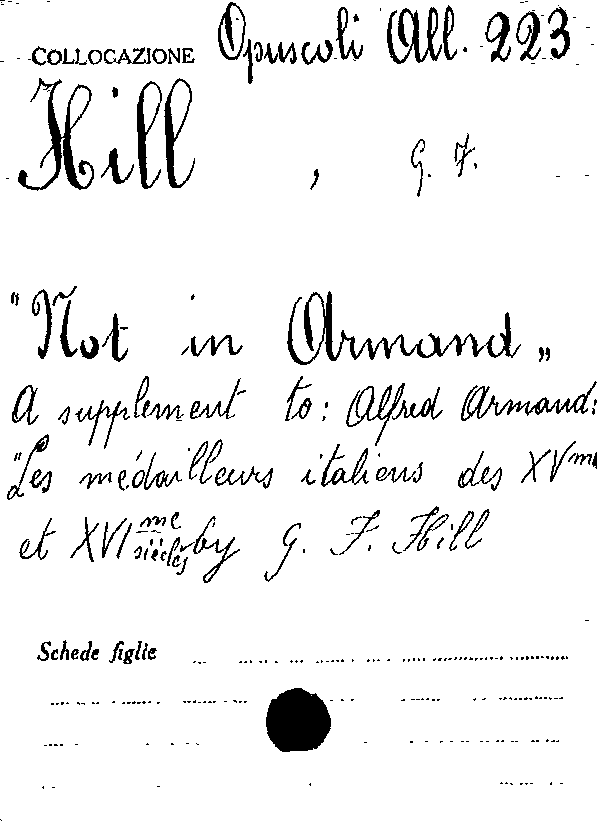 COLLOCAZIONE Opuscoli All. 223
Hill , G. F.
"Not in Armand„
A supplement to: Alfred Armand:
"Les médailleurs italiens des XVme
et XVIme siècles by G. F. Hill
Schede figlie